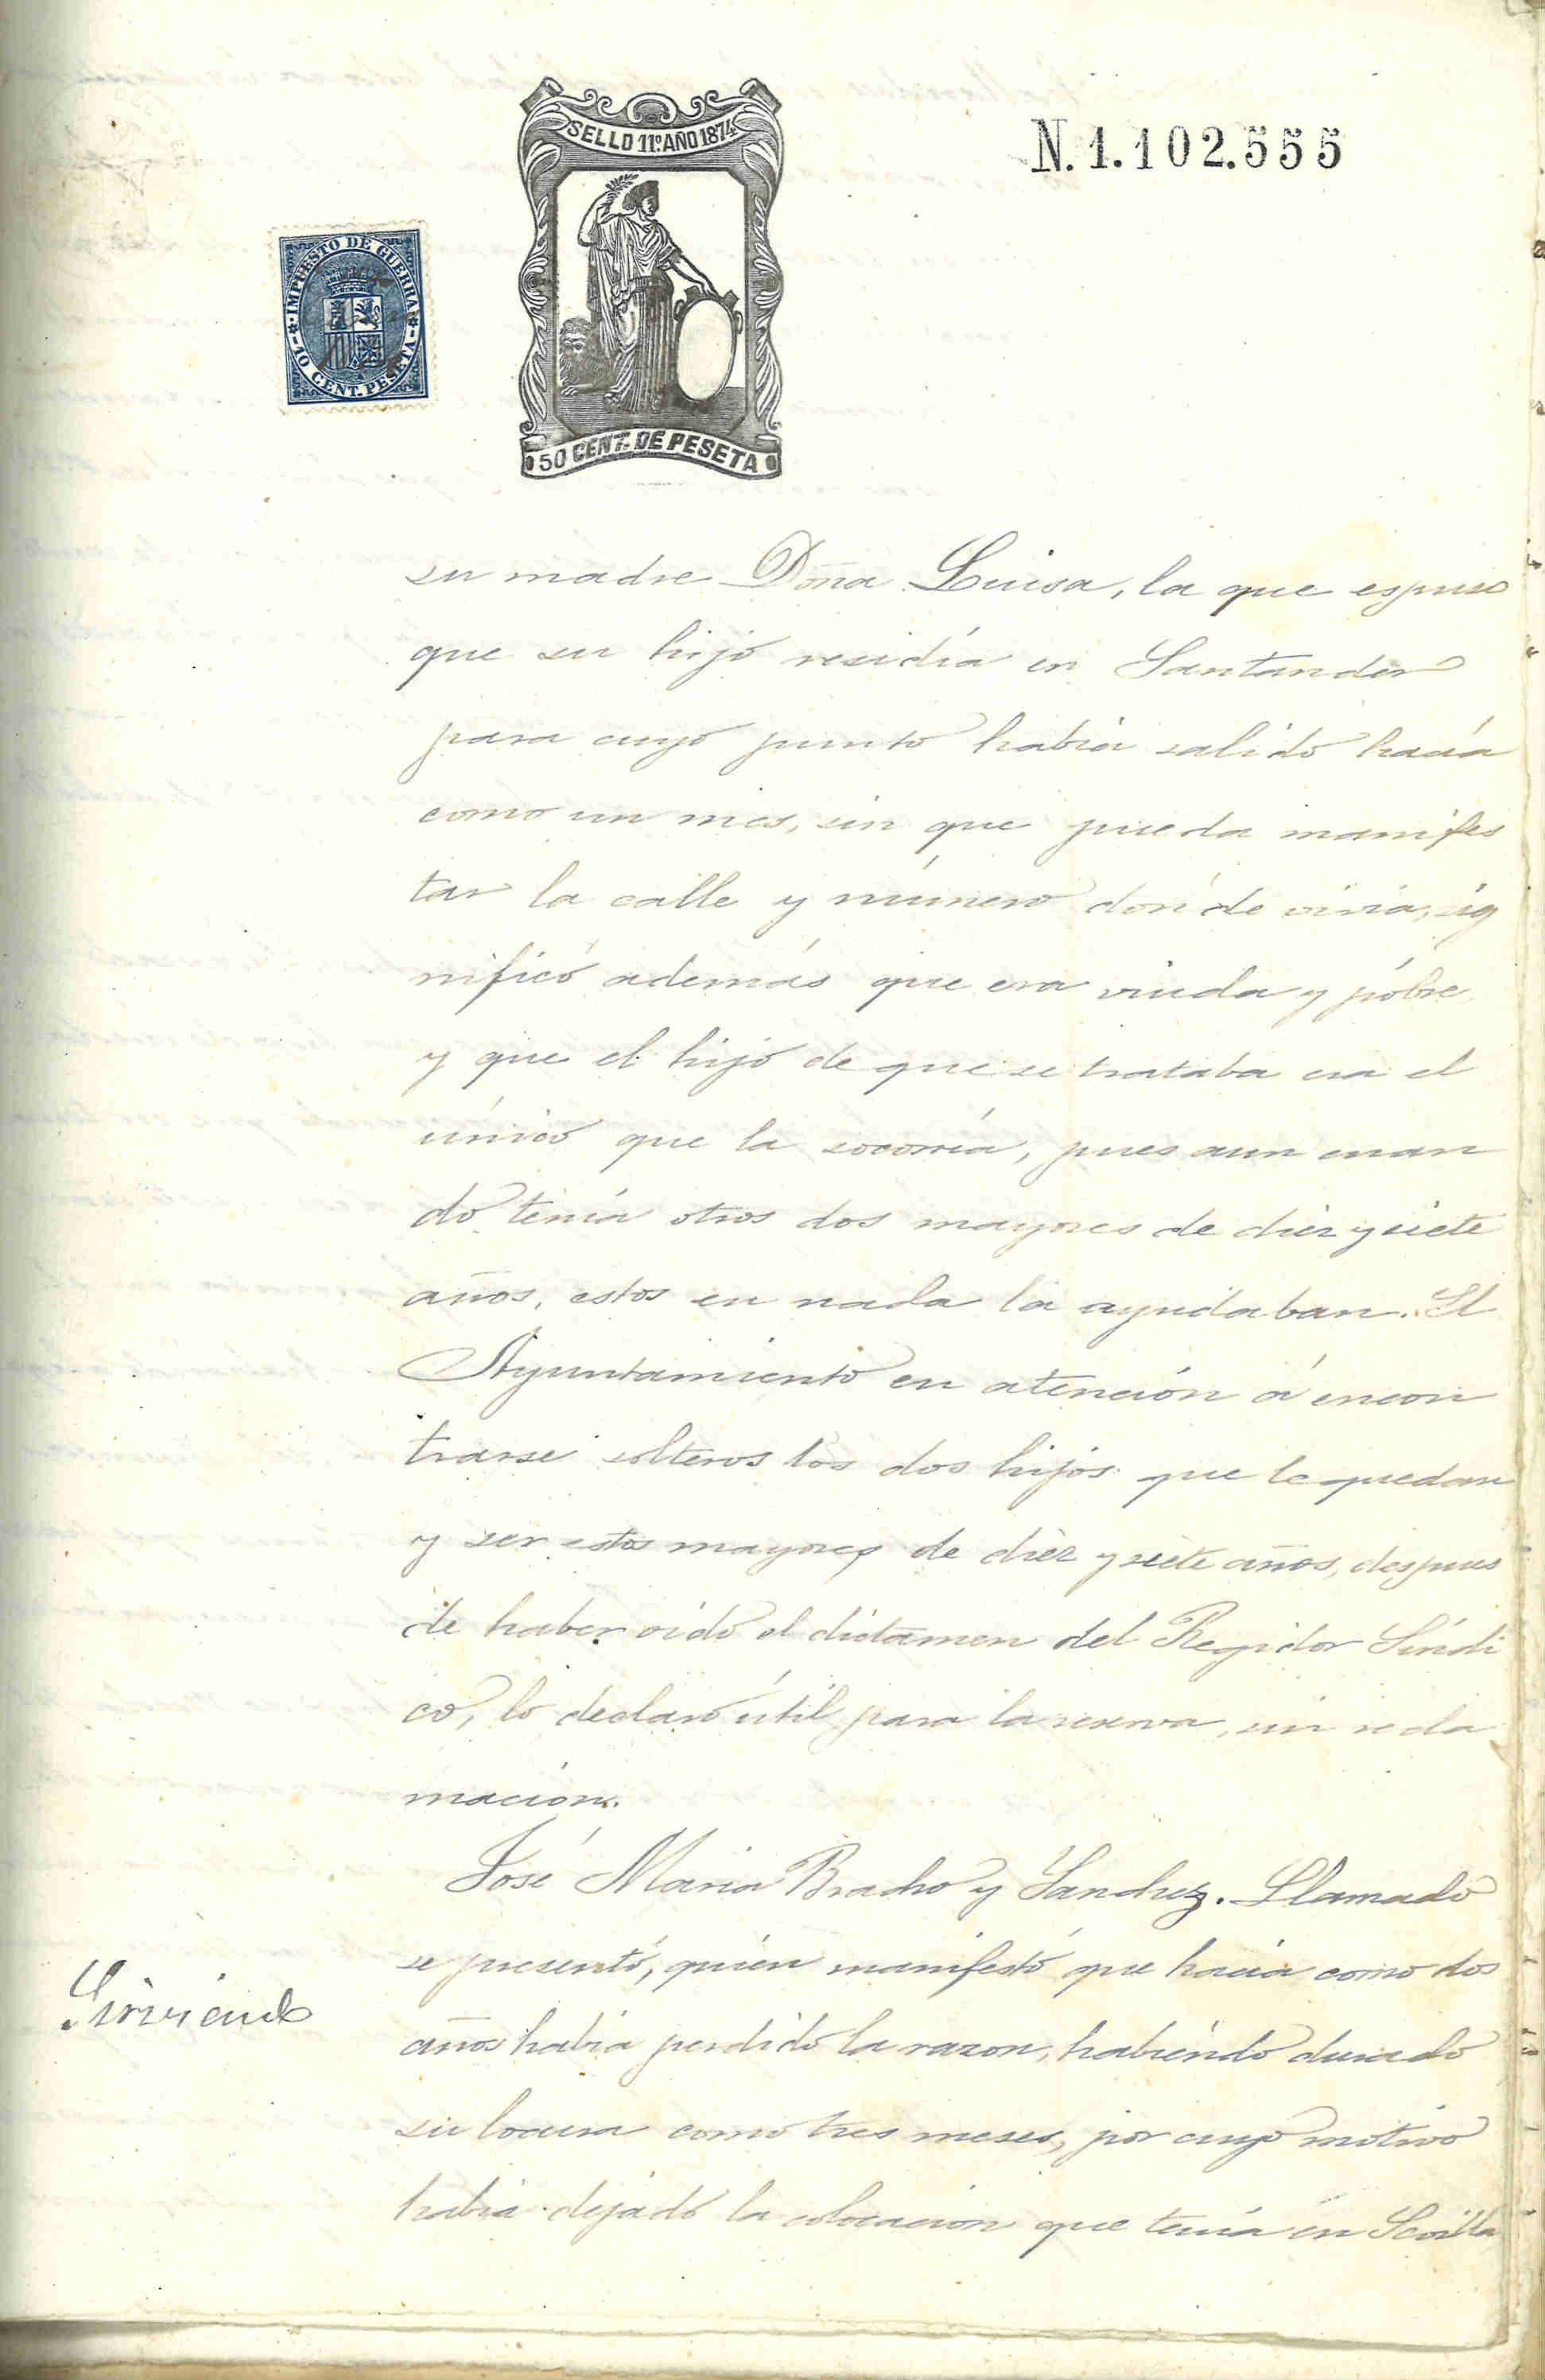 SELLO 11º AÑO 1874
N. 1.102.555
IMPUESTO DE GUERRA
10 CENT. PESETA
50 CENT. DE PESETA
su madre Doña Luisa, la que espuso
que su hijo residía en Santander
para cuyo punto había salido hacía
como un mes, sin que pueda manifes
tar la calle y número donde vivía, sig
nificó además que era viuda y pobre
y que el hijo de que se trataba era el
único que la socorría, pues aun cuan
do tenía otros dos mayores de diez y siete
años, estos en nada la ayudaban. El
Ayuntamiento en atención á encon
trarse solteros los dos hijos que le quedan
y ser estos mayores de diez y siete años, despues
de haber oido el dictamen del Regidor Síndi
co, lo declaró útil para la reserva, sin recla
mación.
José Maria Bracho y Sanchez. Llamado
se presentó, quien manifestó que hacia como dos
años habia perdido la razon, habiendo durado
su locura como tres meses, por cuyo motivo
habia dejado la colocacion que tenía en Sevilla
Sirviendo